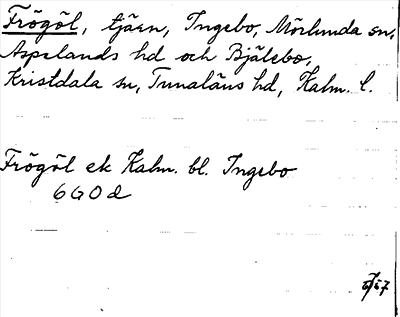 Frögöl, tjärn, Ingebo, Mörlunda sn,
Aspelands hd och Bjälebo,
Kristdala sn, Tunaläns hd, Kalm. l.
Frögöl ek Kalm. bl. Ingebo
6 G O d